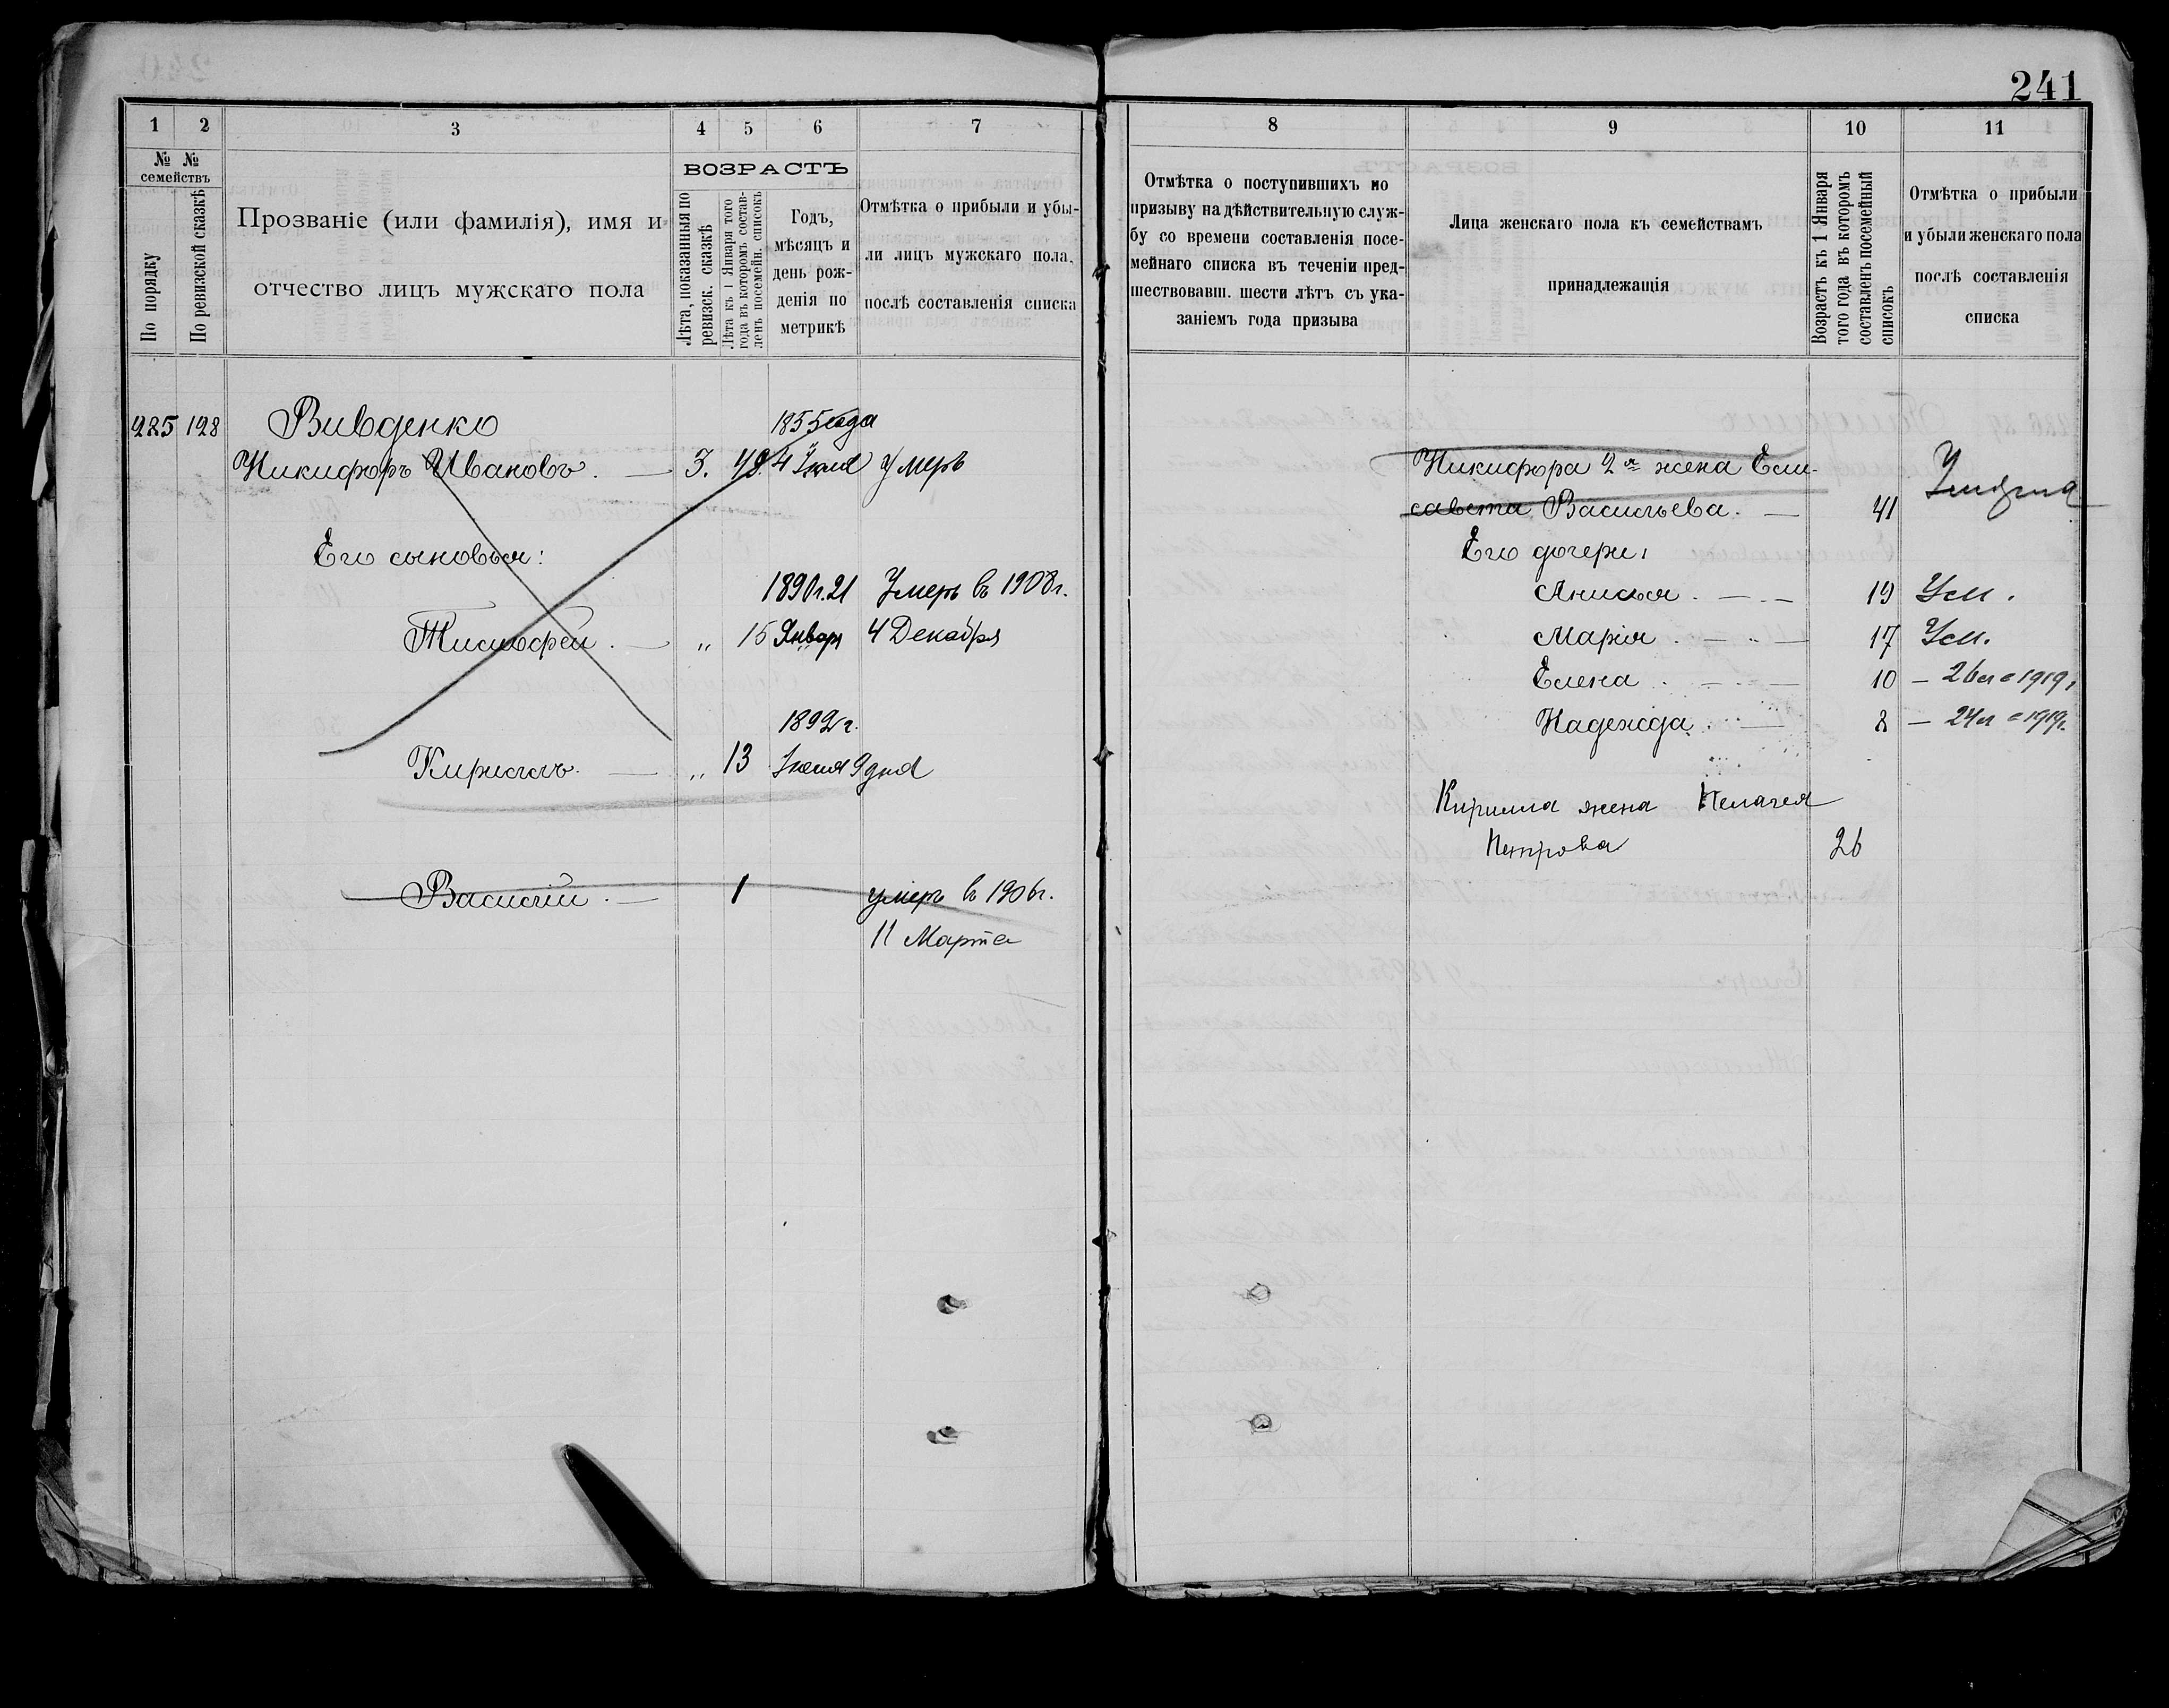 241
1 2 3 4 5 6 7
№ № семействъ
По порядку
По ревизской сказкѣ
Прозваніе (или фамилія), имя и
отчество лицъ мужскаго пола
ВОЗРАСТЪ
Лѣта, показанныя по
ревизск. сказкѣ
Лѣта къ 1 Января того
года въ которомъ состав-
ленъ посемейн. списокъ
Годъ,
мѣсяцъ и
день рож-
денія по
метрикѣ
Отмѣтка о прибыли и убы-
ли лицъ мужскаго пола,
послѣ составленія списка
225 128 Вивденко 1855 года
Никифоръ Ивановъ. — 3. 48. 4 Іюня умеръ
Его сыновья:
1890г. 21 Умеръ въ 1908г.
Тимофей. — „ 15 Января 4 Декабря
1892г.
Кириллъ. — „ 13 Іюня 9 дня
Василій. — 1 умеръ въ 1906г.
11 Марта
8 9 10 11
Отмѣтка о поступившихъ по
призыву на дѣйствительную служ-
бу со времени составленія посе-
мейнаго списка въ теченіи пред-
шествовавш. шести лѣтъ съ ука-
заніемъ года призыва
Лица женскаго пола къ семействамъ
принадлежащія
Возрастъ къ 1 Января
того года въ которомъ
составленъ посемейный
списокъ
Отмѣтка о прибыли
и убыли женскаго пола
послѣ составленія
списка
Никифора 2я жена Ели-
савета Васильева. — 41 Умерла
Его дочери:
Анисья. — 19 Ум.
Марія. — 17 Ум.
Елена. — 10 — 26 л = 1919г.
Надежда. — 2 — 24 л = 1919г.
Кирилла жена Пелагея
Петрова 26